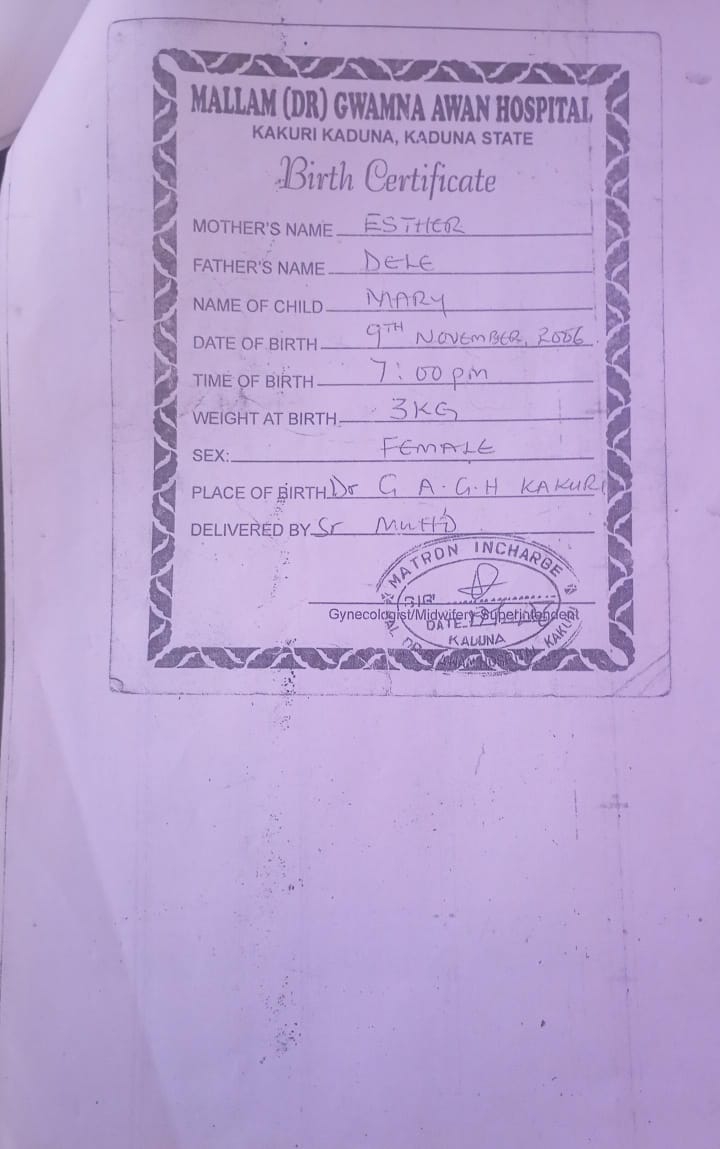 MALLAM (DR) GWAMNA AWAN HOSPITAL
KAKURI KADUNA, KADUNA STATE
Birth Certificate
MOTHER'S NAME ESTHER
FATHER'S NAME DELE
NAME OF CHILD MARY
DATE OF BIRTH 9TH NOVEMBER, 2006
TIME OF BIRTH 7:00 pm
WEIGHT AT BIRTH 3KG
SEX: FEMALE
PLACE OF BIRTH Dr G A.G.H KAKURI
DELIVERED BY Sr MUHD
MATRON INCHARGE
Gynecologist/Midwifery Superintendent
DATE
KADUNA